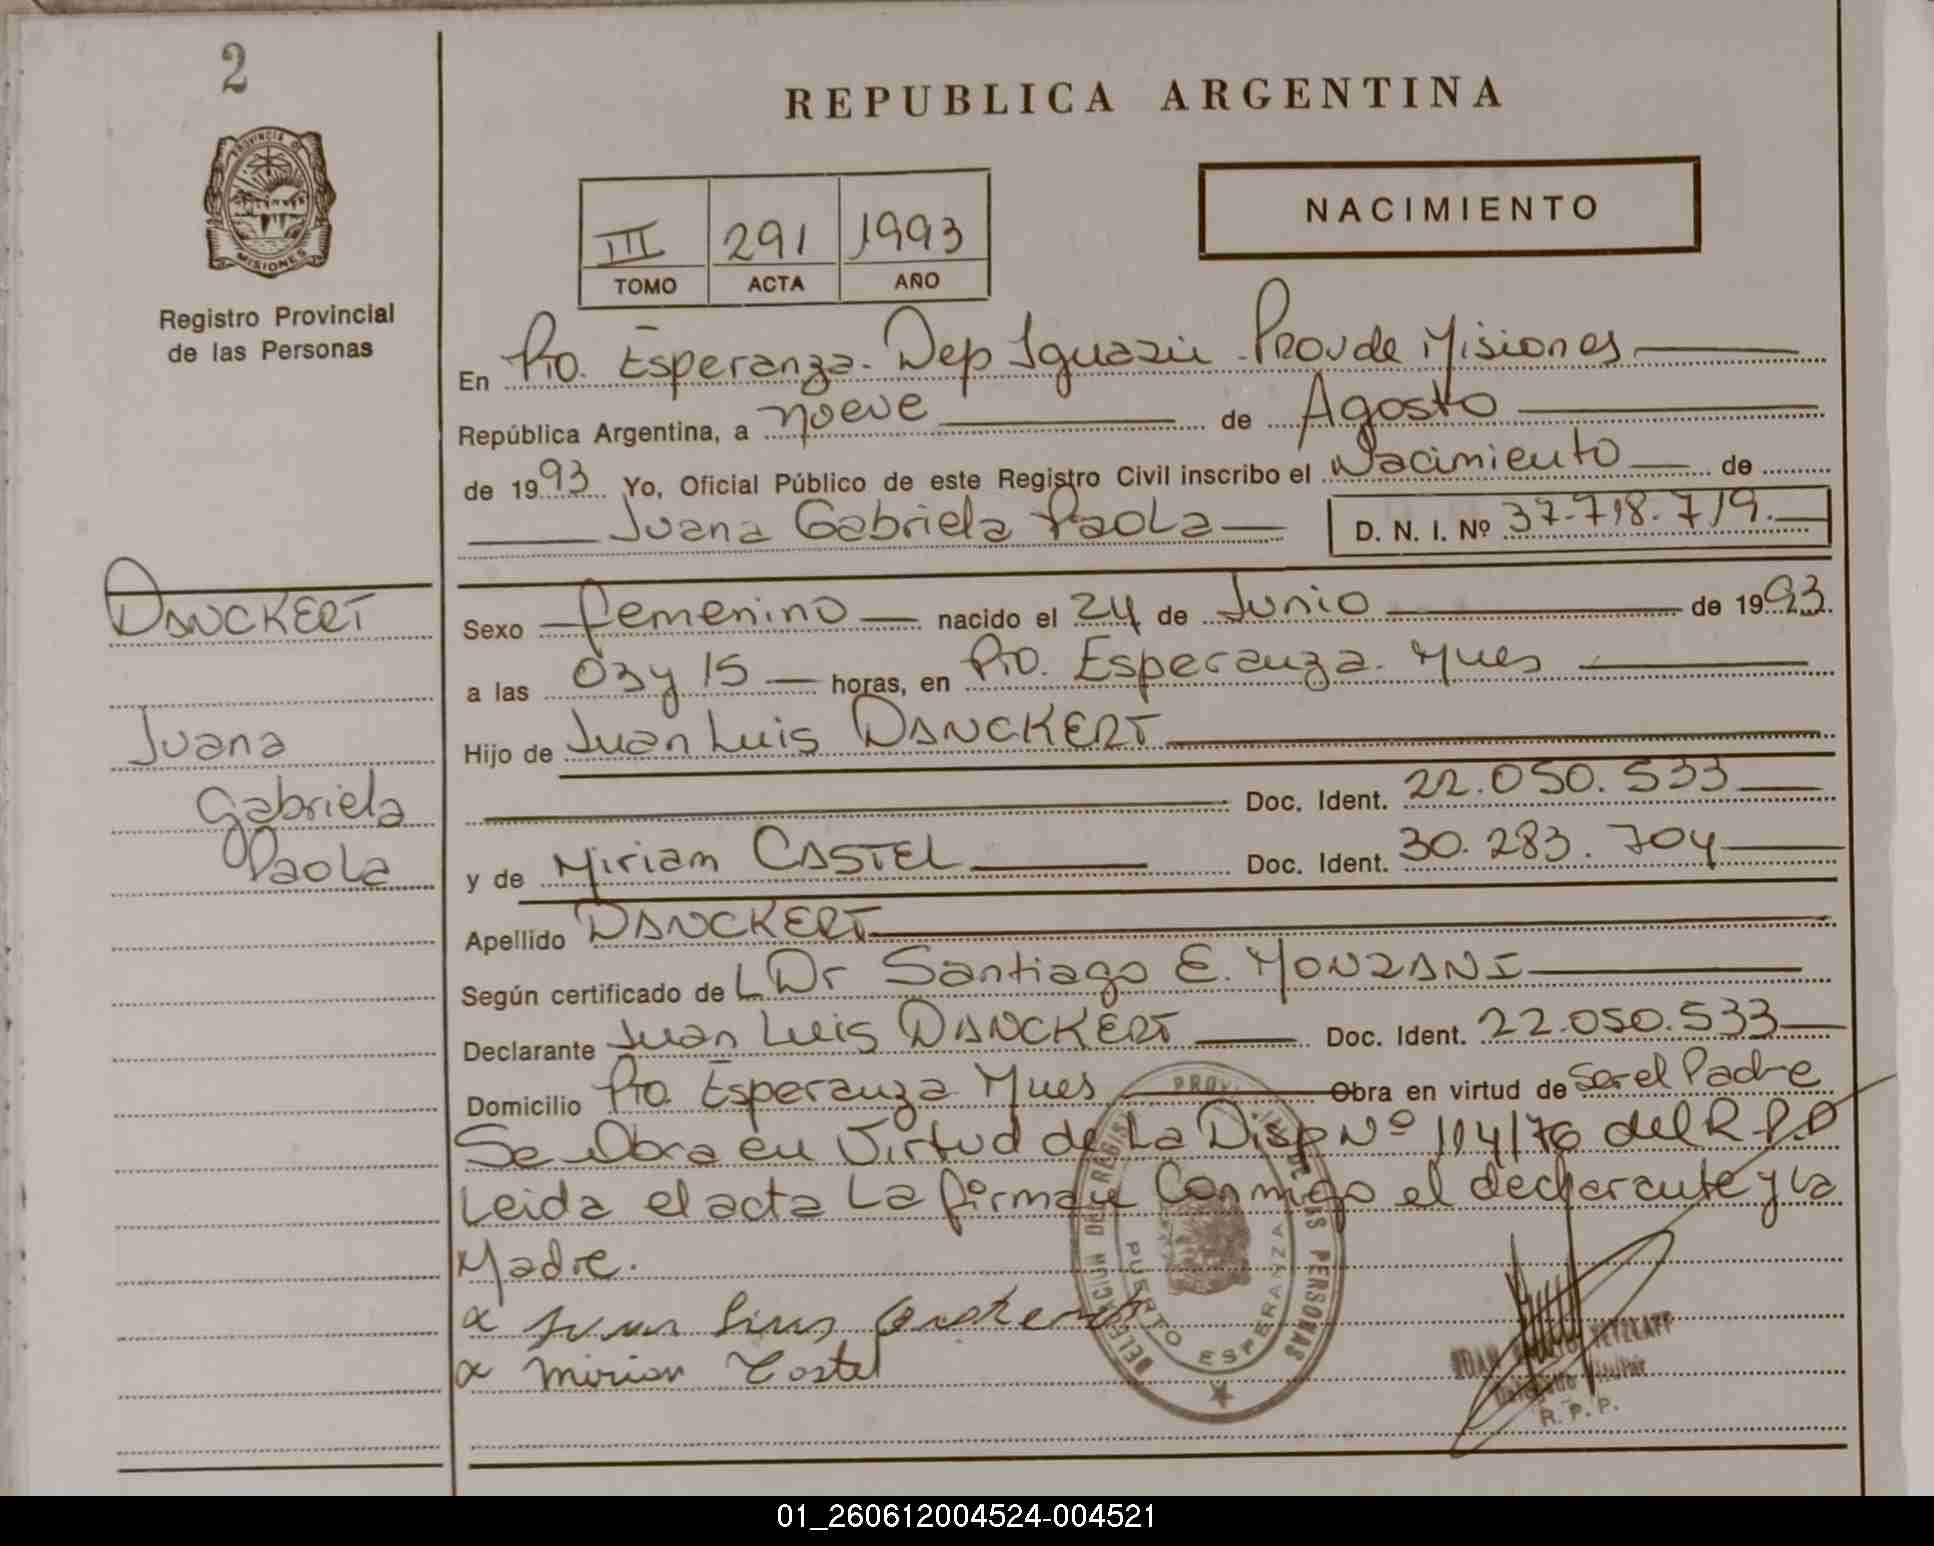 2
REPUBLICA ARGENTINA
NACIMIENTO
III 291 1993
TOMO ACTA AÑO
PROVINCIA DE
MISIONES
Registro Provincial
de las Personas
En Pto. Esperanza. Dep Iguazú. Prov de Misiones
República Argentina, a nueve de Agosto
de 1993 Yo, Oficial Público de este Registro Civil inscribo el Nacimiento de
Juana Gabriela Paola D. N. I. Nº 37.718.719.
DANCKERT
Juana
Gabriela
Paola
Sexo femenino nacido el 24 de Junio de 1993.
a las 03 y 15 horas, en Pto. Esperanza. Mnes
Hijo de Juan Luis DANCKERT
Doc. Ident. 22.050.533
y de Miriam CASTEL Doc. Ident. 30.283.704
Apellido DANCKERT
Según certificado de L Dr Santiago E. MONZANI
Declarante Juan Luis DANCKERT Doc. Ident. 22.050.533
Domicilio Pto. Esperanza Mnes Obra en virtud de Ser el Padre
Se Obra en Virtud de La Disp Nº 114/76 del R.P.P
Leida el acta La firman Conmigo el declarante y La
Madre.
Mirian Castel
DELEGACION DEL REGISTRO PROV. DE LAS PERSONAS
PUERTO ESPERANZA
R. P. P.
01_260612004524-004521